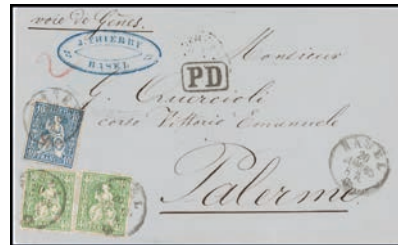 voie de Gênes.
J. THIERRY
BASEL
PD
Monsieur
G. Quercioli
corso Vittorio Emanuele
Palerme
BASEL
20